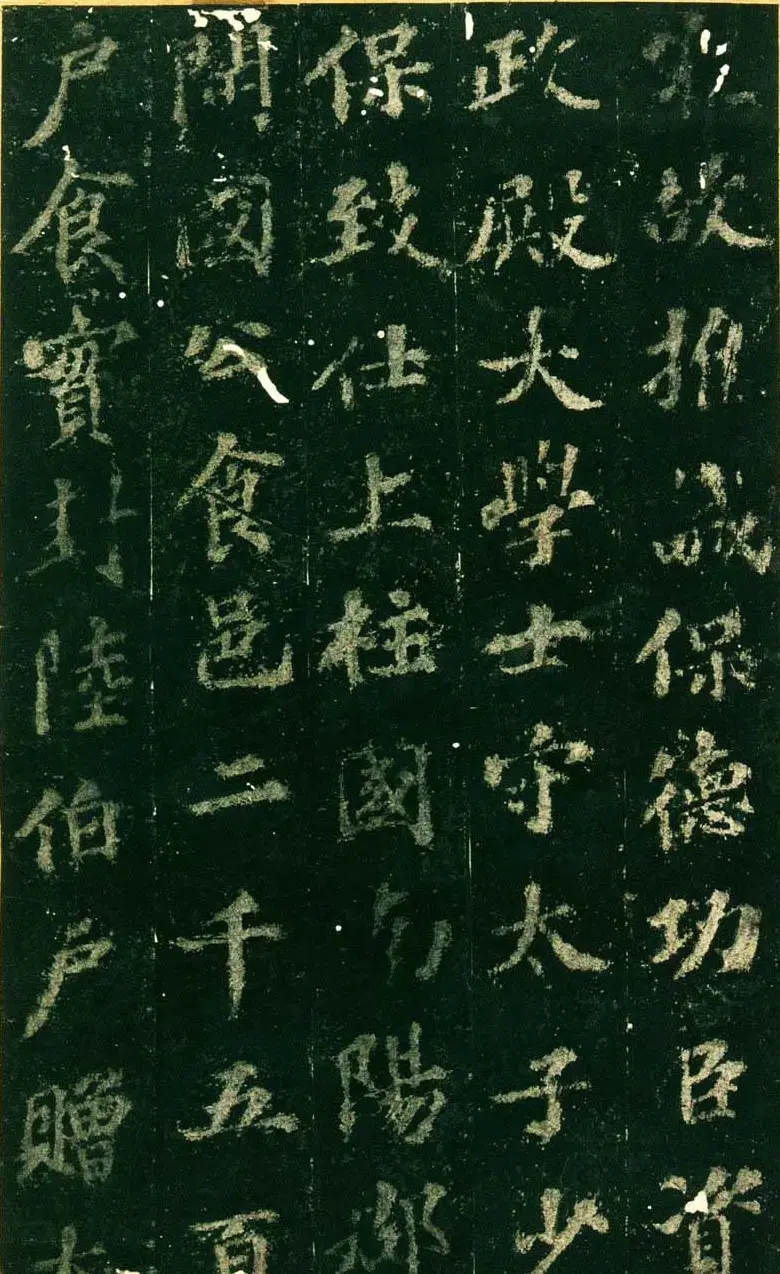 宋故推誠保德功臣資
政殿大學士守太子少
保致仕上柱國陽郡
開國公食邑二千五百
户食實封陸伯户贈